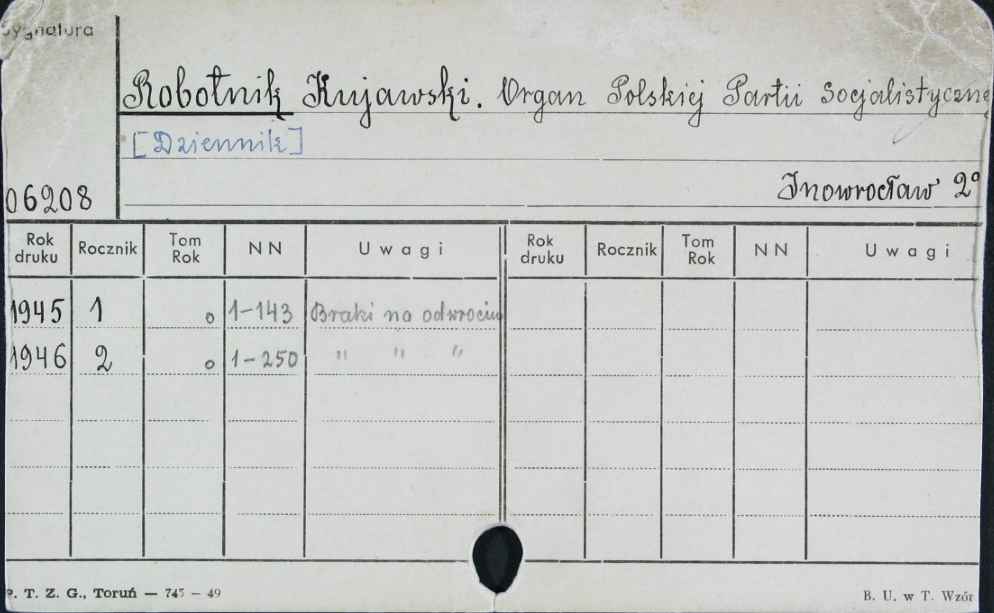 Sygnatura
Robotnik Kujawski. Organ Polskiej Partii Socjalistycznej
[Dziennik]
06208
Inowrocław 2°
Rok druku Rocznik Tom Rok NN Uwagi Rok druku Rocznik Tom Rok NN Uwagi
1945 1 o 1-143 Braki na odwrociu
1946 2 o 1-250 " " "
P. T. Z. G., Toruń — 745 — 49
B. U. w T. Wzór